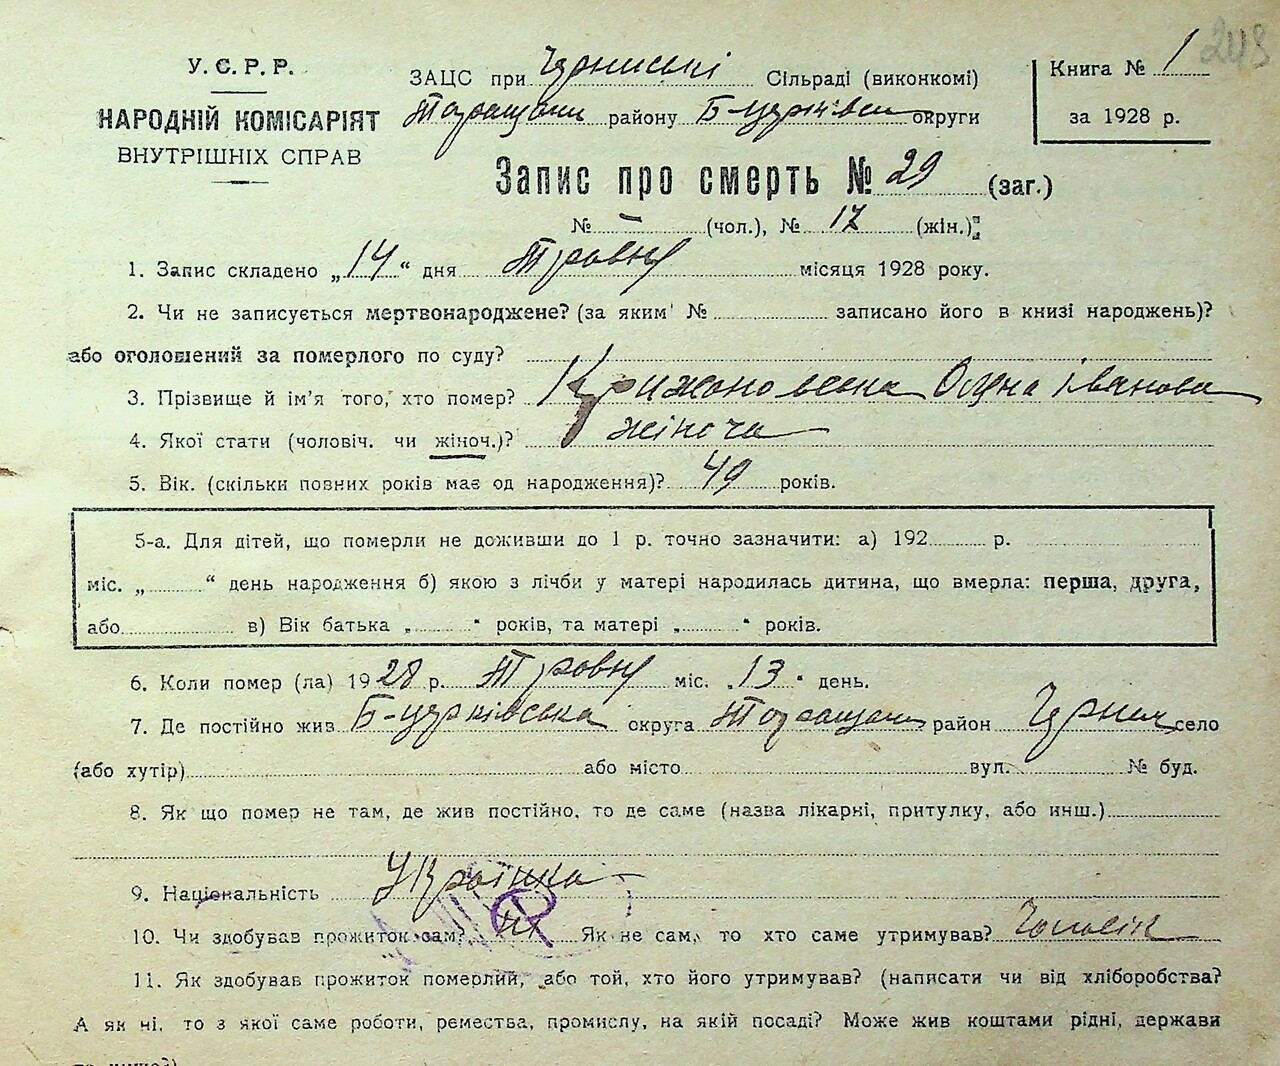 243
У.С.Р.Р.
НАРОДНІЙ КОМІСАРІЯТ
ВНУТРІШНІХ СПРАВ
ЗАЦС при Чернинські Сільраді (виконкомі)
Таращан району Б-церківськ округи
Книга № 1
за 1928 р.
Запис про смерть № 29 (заг.)
№ — (чол.), № 17 (жін.)
1. Запис складено „14“ дня Травня місяця 1928 року.
2. Чи не записується мертвонароджене? (за яким № записано його в книзі народжень)?
або оголошений за померлого по суду?
3. Прізвище й ім'я того, хто помер? Крижановська Олена Іванова
4. Якої стати (чоловіч. чи жіноч.)? жіноча
5. Вік. (скільки повних років має од народження)? 49 років.
5-а. Для дітей, що померли не доживши до 1 р. точно зазначити: а) 192 р.
міс. „ “ день народження б) якою з лічби у матері народилась дитина, що вмерла: перша, друга,
або в) Вік батька „ “ років, та матері „ “ років.
6. Коли помер (ла) 1928 р. Травня міс. „13“ день.
7. Де постійно жив Б-церківська округа Таращан район Черин село
(або хутір) або місто вул. № буд.
8. Як що помер не там, де жив постійно, то де саме (назва лікарні, притулку, або инш.)
9. Національність Українка
10. Чи здобував прожиток сам? ні Як не сам, то хто саме утримував? Чоловік
11. Як здобував прожиток померлий, або той, хто його утримував? (написати чи від хліборобства?
А як ні, то з якої саме роботи, ремества, промислу, на якій посаді? Може жив коштами рідні, держави